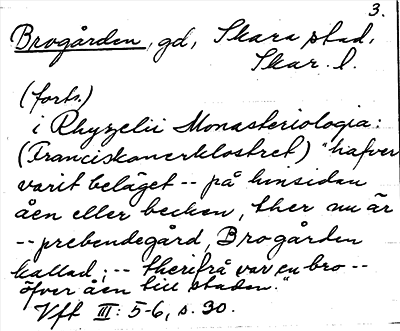 3.
Brogården, gd, Skara stad,
Skar. l.
(forts.)
i Rhyzelii Monasteriologia:
(Franciskanerklostret) "hafver
varit beläget -- på hinsidan
åen eller becken, ther nu är
-- prebendegård, Brogården
kallad; -- therifrå var en bro --
öfver åen till staden."
Vft III: 5-6, s. 30.